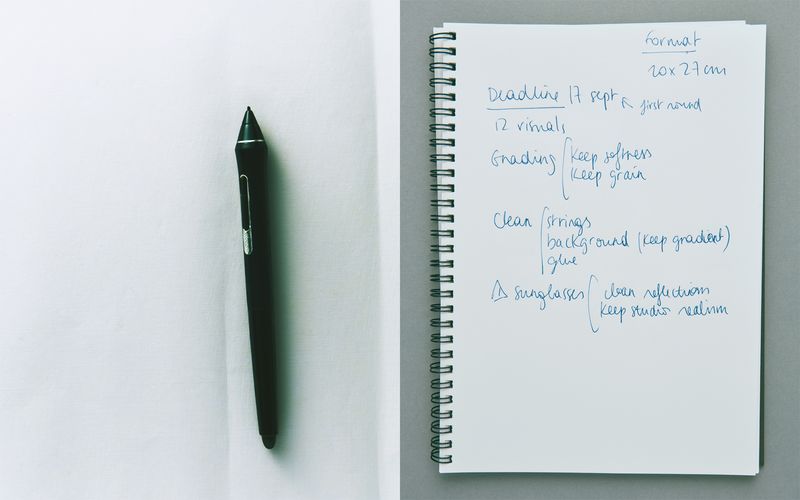 Format
20x27cm
Deadline 17 sept ↖ first round
12 visuals
Grading keep softness
keep grain
Clean strings
background (keep gradient)
glue
⚠ sunglasses clean reflections
keep studio realism